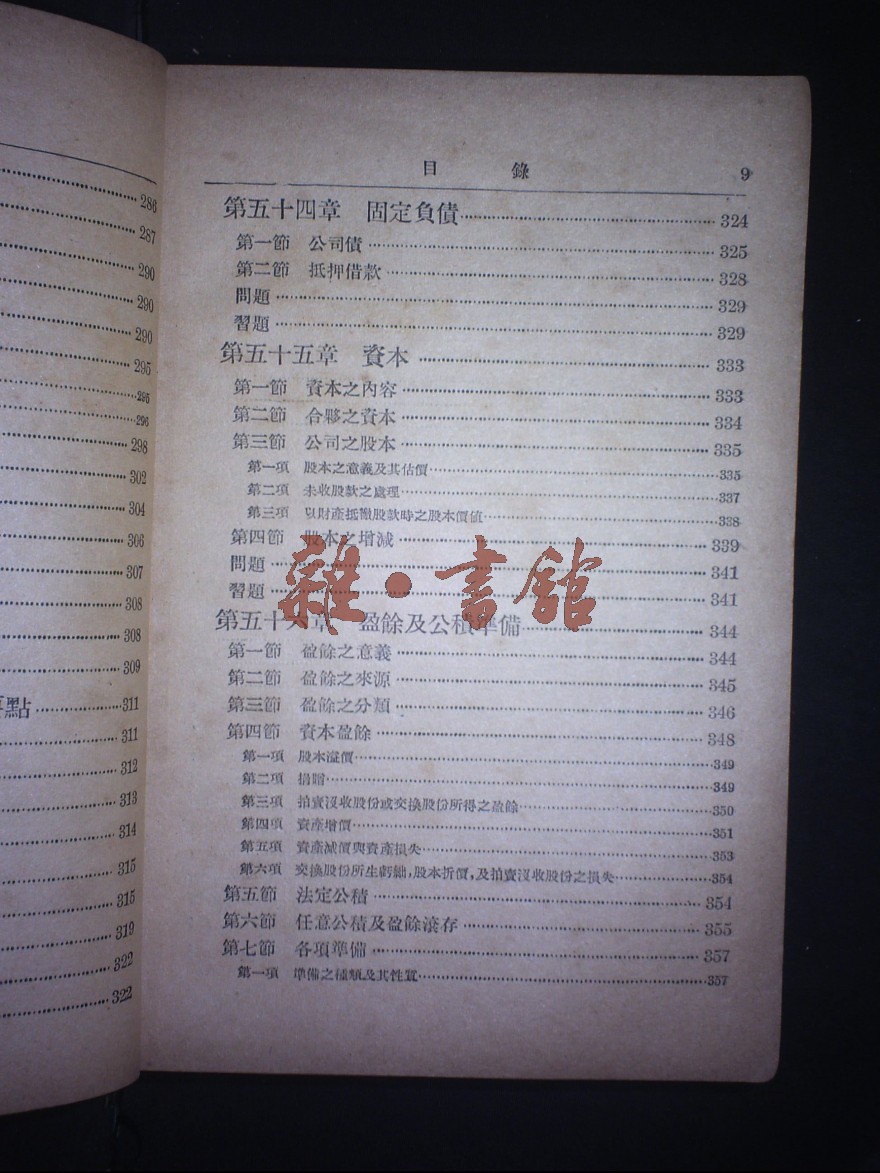 286
287
290
290
290
295
295
296
298
302
304
306
307
308
308
309
點 311
311
312
313
314
315
315
319
322
322
目 錄 9
第五十四章 固定負債 324
第一節 公司債 325
第二節 抵押借款 328
問題 329
習題 329
第五十五章 資本 333
第一節 資本之內容 333
第二節 合夥之資本 334
第三節 公司之股本 335
第一項 股本之意義及其估價 335
第二項 未收股款之處理 337
第三項 以財產抵繳股款時之股本價值 338
第四節 股本之增減 339
問題 341
習題 341
雜·書館
第五十六章 盈餘及公積準備 344
第一節 盈餘之意義 344
第二節 盈餘之來源 345
第三節 盈餘之分類 346
第四節 資本盈餘 348
第一項 股本溢價 349
第二項 捐贈 349
第三項 拍賣沒收股份或交換股份所得之盈餘 350
第四項 資產增價 351
第五項 資產減價與資產損失 353
第六項 交換股份所生虧絀,股本折價,及拍賣沒收股份之損失 354
第五節 法定公積 354
第六節 任意公積及盈餘滾存 355
第七節 各項準備 357
第一項 準備之種類及其性質 357